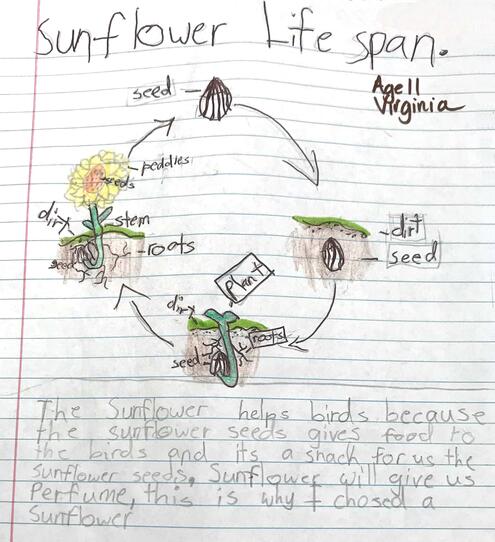 Sunflower Life span.
Agell
Virginia
seed
peddles
seeds
dirt
stem
roots
seed
dirt
seed
plant
dirt
roots
seed
The Sunflower helps birds because
the sunflower seeds gives food to
the birds and its a snack for us the
sunflower seeds, Sunflower will give us
Perfume, this is why I chosed a
Sunflower